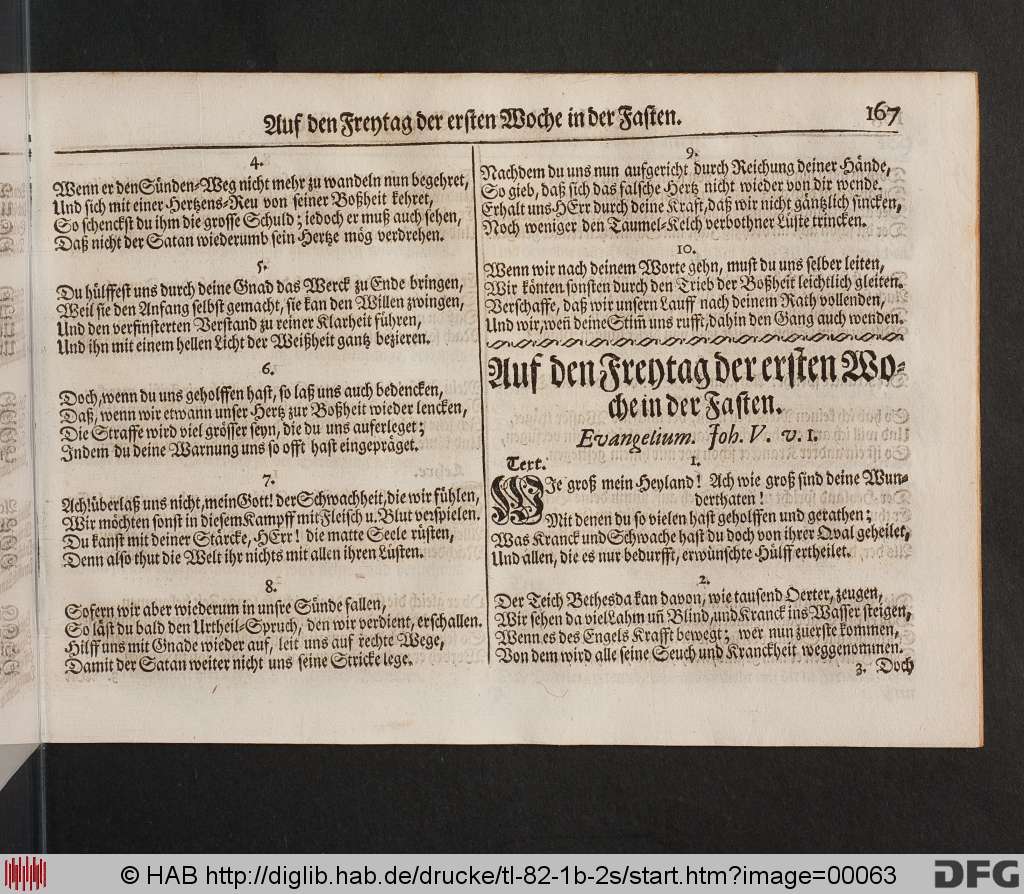 Auf den Freytag der ersten Woche in der Fasten. 167
4.
Wenn er den Sünden-Weg nicht mehr zu wandeln nun begehret,
Und sich mit einer Hertzens-Reu von seiner Boßheit kehret,
So schenckst du ihm die grosse Schuld; iedoch er muß auch sehen,
Daß nicht der Satan wiederumb sein Hertze mög verdrehen.
5.
Du hülffest uns durch deine Gnad das Werck zu Ende bringen,
Weil sie den Anfang selbst gemacht, sie kan den Willen zwingen,
Und den verfinsterten Verstand zu reiner Klarheit führen,
Und ihn mit einem hellen Licht der Weißheit gantz bezieren.
6.
Doch, wenn du uns geholffen hast, so laß uns auch bedencken,
Daß, wenn wir etwann unser Hertz zur Boßheit wieder lencken,
Die Straffe wird viel grösser seyn, die du uns auferleget;
Indem du deine Warnung uns so offt hast eingepräget.
7.
Ach! überlaß uns nicht, mein Gott! der Schwachheit, die wir fühlen,
Wir möchten sonst in diesem Kampff mit Fleisch u. Blut verspielen.
Du kanst mit deiner Stärcke, HErr! die matte Seele rüsten,
Denn also thut die Welt ihr nichts mit allen ihren Lüsten.
8.
Sofern wir aber wiederum in unsre Sünde fallen,
So läst du bald den Urtheil-Spruch, den wir verdient, erschallen.
Hilff uns mit Gnade wieder auf, leit uns auf rechte Wege,
Damit der Satan weiter nicht uns seine Stricke lege.
9.
Nachdem du uns nun aufgericht durch Reichung deiner Hände,
So gieb, daß sich das falsche Hertz nicht wieder von dir wende.
Erhalt uns HErr durch deine Kraft, daß wir nicht gäntzlich sincken,
Noch weniger den Taumel-Kelch verbothner Lüste trincken.
10.
Wenn wir nach deinem Worte gehn, must du uns selber leiten,
Wir könten sonsten durch den Trieb der Boßheit leichtlich gleiten.
Verschaffe, daß wir unsern Lauff nach deinem Rath vollenden,
Und wir, weñ deine Stim̃ uns rufft, dahin den Gang auch wenden.
Auf den Freytag der ersten Wo-
che in der Fasten.
Evangelium. Joh. V. v. 1.
Text. 1.
WJe groß mein Heyland! Ach wie groß sind deine Wun-
derthaten!
Mit denen du so vielen hast geholffen und gerathen;
Was Kranck und Schwache hast du doch von ihrer Qval geheilet,
Und allen, die es nur bedurfft, erwünschte Hülff ertheilet.
2.
Der Teich Bethesda kan davon, wie tausend Oerter, zeugen,
Wir sehen da viel Lahm uñ Blind, und Kranck ins Wasser steigen,
Wenn es des Engels Krafft bewegt; wer nun zuerste kommen,
Von dem wird alle seine Seuch und Kranckheit weggenommen.
3. Doch
© HAB http://diglib.hab.de/drucke/tl-82-1b-2s/start.htm?image=00063
DFG